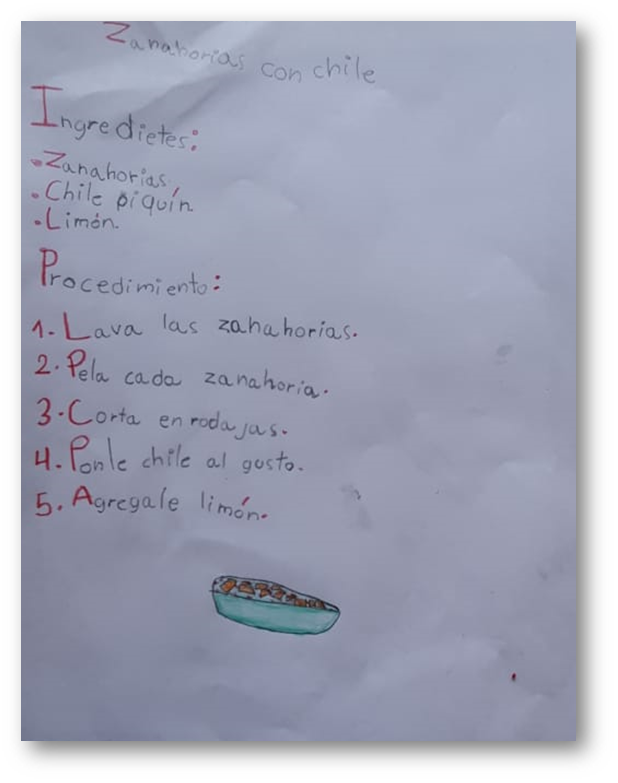 Zanahorias con chile
Ingredietes:
.Zanahorias
.Chile piquín
.Limón.
Procedimiento:
1. Lava las zahahorias.
2. Pela cada zanahoria.
3. Corta en rodajas.
4. Ponle chile al gusto.
5. Agregale limón.